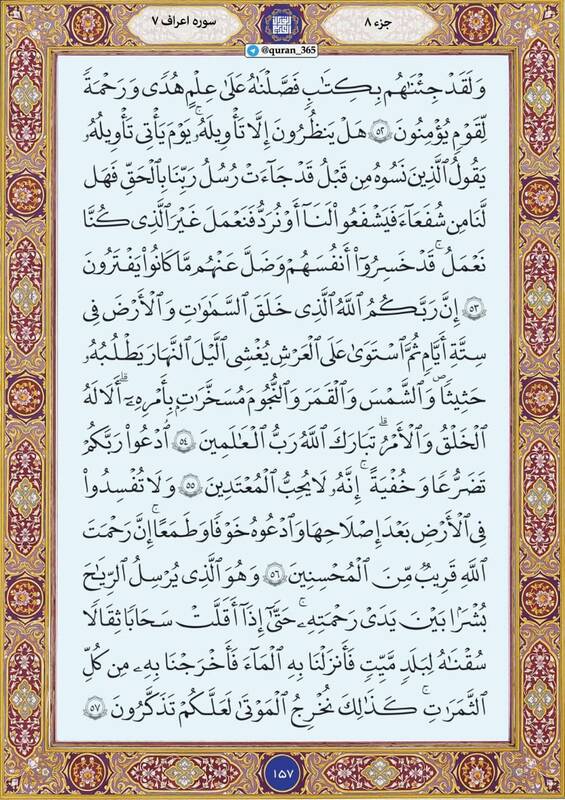 جزء ۸
سوره اعراف ۷
@quran_365
وَلَقَدْ جِئْنَٰهُم بِكِتَٰبٍ فَصَّلْنَٰهُ عَلَىٰ عِلْمٍ هُدًى وَرَحْمَةً
لِّقَوْمٍ يُؤْمِنُونَ ۵۲ هَلْ يَنظُرُونَ إِلَّا تَأْوِيلَهُۥ ۚ يَوْمَ يَأْتِى تَأْوِيلُهُۥ
يَقُولُ ٱلَّذِينَ نَسُوهُ مِن قَبْلُ قَدْ جَآءَتْ رُسُلُ رَبِّنَا بِٱلْحَقِّ فَهَل
لَّنَا مِن شُفَعَآءَ فَيَشْفَعُوا۟ لَنَآ أَوْ نُرَدُّ فَنَعْمَلَ غَيْرَ ٱلَّذِى كُنَّا
نَعْمَلُ ۚ قَدْ خَسِرُوٓا۟ أَنفُسَهُمْ وَضَلَّ عَنْهُم مَّا كَانُوا۟ يَفْتَرُونَ
۵۳ إِنَّ رَبَّكُمُ ٱللَّهُ ٱلَّذِى خَلَقَ ٱلسَّمَٰوَٰتِ وَٱلْأَرْضَ فِى
سِتَّةِ أَيَّامٍ ثُمَّ ٱسْتَوَىٰ عَلَى ٱلْعَرْشِ يُغْشِى ٱلَّيْلَ ٱلنَّهَارَ يَطْلُبُهُۥ
حَثِيثًا وَٱلشَّمْسَ وَٱلْقَمَرَ وَٱلنُّجُومَ مُسَخَّرَٰتٍۭ بِأَمْرِهِۦٓ ۗ أَلَا لَهُ
ٱلْخَلْقُ وَٱلْأَمْرُ ۗ تَبَارَكَ ٱللَّهُ رَبُّ ٱلْعَٰلَمِينَ ۵۴ ٱدْعُوا۟ رَبَّكُمْ
تَضَرُّعًا وَخُفْيَةً ۚ إِنَّهُۥ لَا يُحِبُّ ٱلْمُعْتَدِينَ ۵۵ وَلَا تُفْسِدُوا۟
فِى ٱلْأَرْضِ بَعْدَ إِصْلَٰحِهَا وَٱدْعُوهُ خَوْفًا وَطَمَعًا ۚ إِنَّ رَحْمَتَ
ٱللَّهِ قَرِيبٌ مِّنَ ٱلْمُحْسِنِينَ ۵۶ وَهُوَ ٱلَّذِى يُرْسِلُ ٱلرِّيَٰحَ
بُشْرًۢا بَيْنَ يَدَىْ رَحْمَتِهِۦ ۖ حَتَّىٰٓ إِذَآ أَقَلَّتْ سَحَابًا ثِقَالًا
سُقْنَٰهُ لِبَلَدٍ مَّيِّتٍ فَأَنزَلْنَا بِهِ ٱلْمَآءَ فَأَخْرَجْنَا بِهِۦ مِن كُلِّ
ٱلثَّمَرَٰتِ ۚ كَذَٰلِكَ نُخْرِجُ ٱلْمَوْتَىٰ لَعَلَّكُمْ تَذَكَّرُونَ ۵۷
۱۵۷